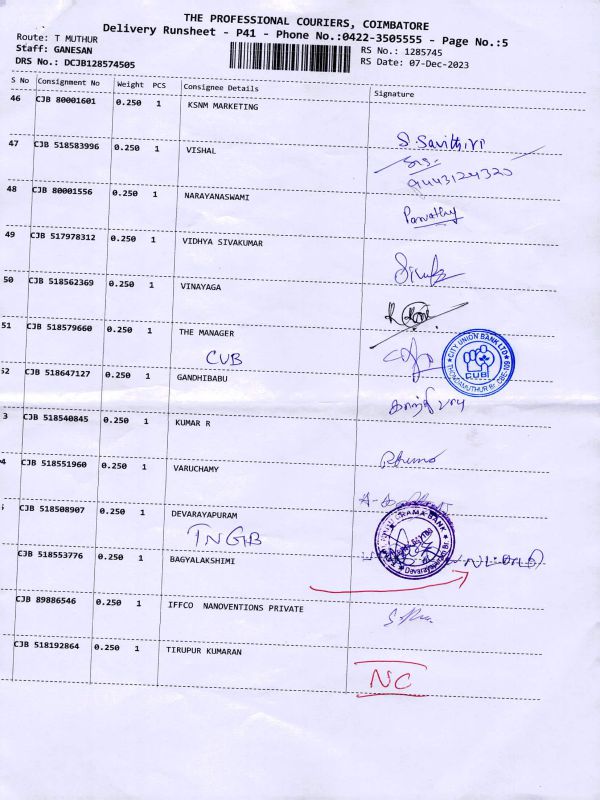 THE PROFESSIONAL COURIERS, COIMBATORE
Delivery Runsheet - P41 - Phone No.:0422-3505555 - Page No.:5
Route: T MUTHUR
Staff: GANESAN
DRS No.: DCJB128574505
RS No.: 1285745
RS Date: 07-Dec-2023
S No Consignment No Weight PCS Consignee Details Signature
46 CJB 80001601 0.250 1 KSNM MARKETING
S. Savithiri
47 CJB 518583996 0.250 1 VISHAL
9443124320
48 CJB 80001556 0.250 1 NARAYANASWAMI
Parvathy
49 CJB 517978312 0.250 1 VIDHYA SIVAKUMAR
50 CJB 518562369 0.250 1 VINAYAGA
51 CJB 518579660 0.250 1 THE MANAGER
CUB
CITY UNION BANK LTD
CUB
THONDAMUTHUR Br. CBE-109
52 CJB 518647127 0.250 1 GANDHIBABU
3 CJB 518540845 0.250 1 KUMAR R
4 CJB 518551960 0.250 1 VARUCHAMY
CJB 518508907 0.250 1 DEVARAYAPURAM
TNGB
GRAMA BANK
Devarayapuram Br.
CJB 518553776 0.250 1 BAGYALAKSHIMI
CJB 89886546 0.250 1 IFFCO NANOVENTIONS PRIVATE
CJB 518192864 0.250 1 TIRUPUR KUMARAN
NC